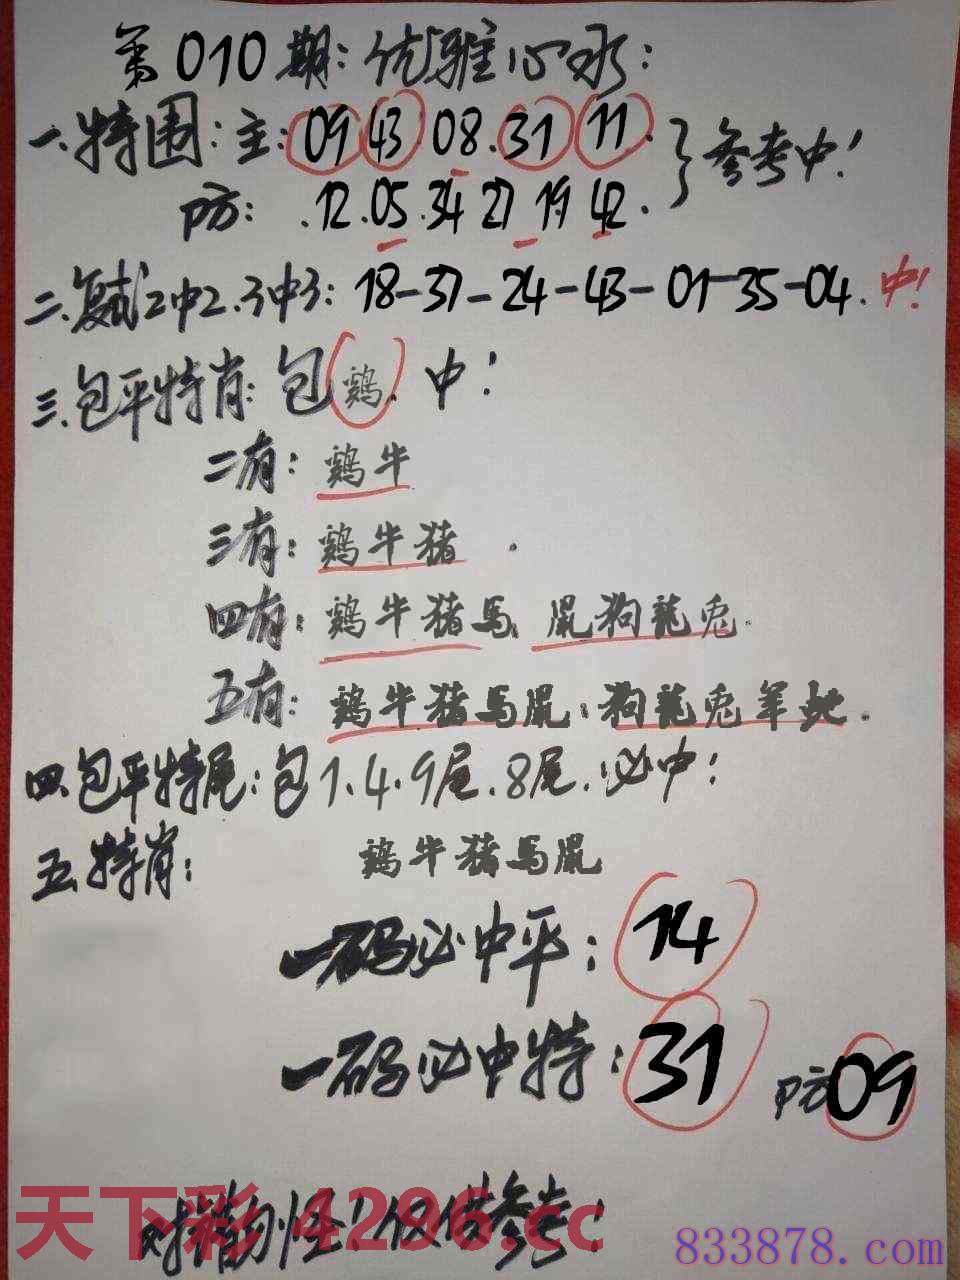 第010期：优雅心水：
一.特围：主：09 43 08.31 11.
参考中！
防：.12.05.34 27 19 42.
二.复试2中2.3中3：18-37-24-43-01-35-04.中！
三.包平特肖：包鷄.中！
二有：鷄牛
三有：鷄牛猪.
四有：鷄牛猪馬 鼠狗龍兔.
五有：鷄牛猪馬鼠：狗龍兔羊蛇.
四.包平特尾：包1.4.9尾.8尾.必中！
五.特肖：鷄牛猪馬鼠
一码必中平：14
一码必中特：31 防09
天下彩 4296.cc
勿怪！仅供参考！
833878.com